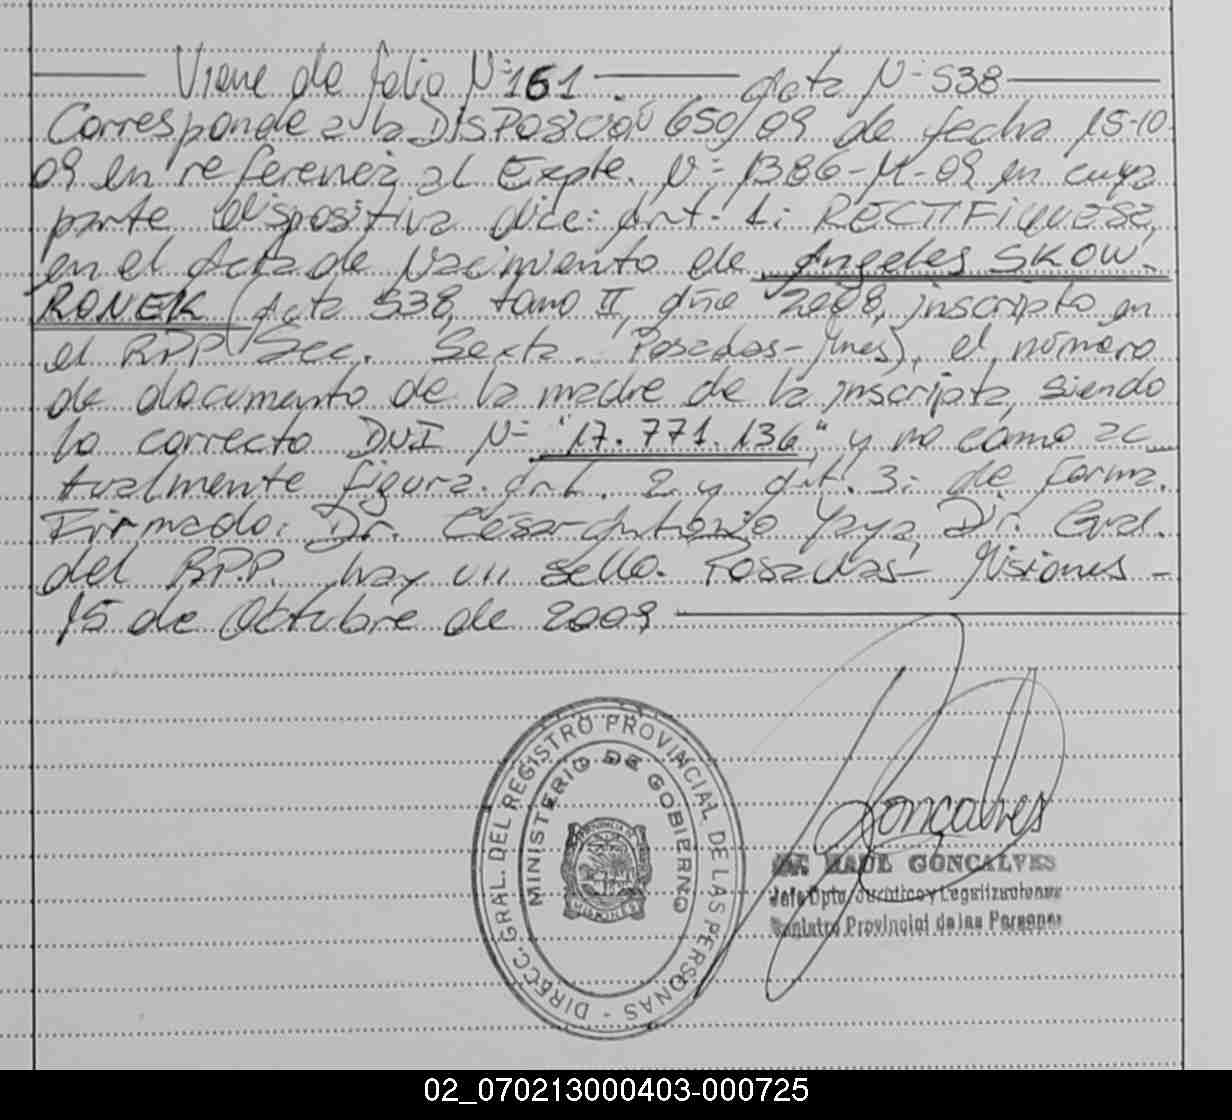 Viene de folio Nº 161. Acta Nº 538
Corresponde a la DISPOSICIÓN 650/09 de fecha 15-10
09 en referencia al Expte. Nº 1386-M-09 en cuya
parte dispositiva dice: Art. 1: RECTIFIQUESE,
en el Acta de Nacimiento de Angeles SKOW-
RONEK (Acta 538, tomo II, año 2008, inscripto en
el RPP Sec. Sexta. Posadas-Mnes), el número
de documento de la madre de la inscripta, siendo
lo correcto DNI Nº "17.771.136" y no como ac
tualmente figura. Art. 2 y Art. 3: de forma.
Firmado: Dr. César Antonio Yaya, Dir. Gral.
del RPP. hay un sello. Posadas- Misiones-
15 de Octubre de 2009
DIRECC. GRAL. DEL REGISTRO PROVINCIAL DE LAS PERSONAS -
MINISTERIO DE GOBIERNO
PROVINCIA DE
MISIONES
Goncalves
RAUL GONCALVES
Jefe Dpto. Jurídico y Legalizaciones
Registro Provincial de las Personas
02_070213000403-000725